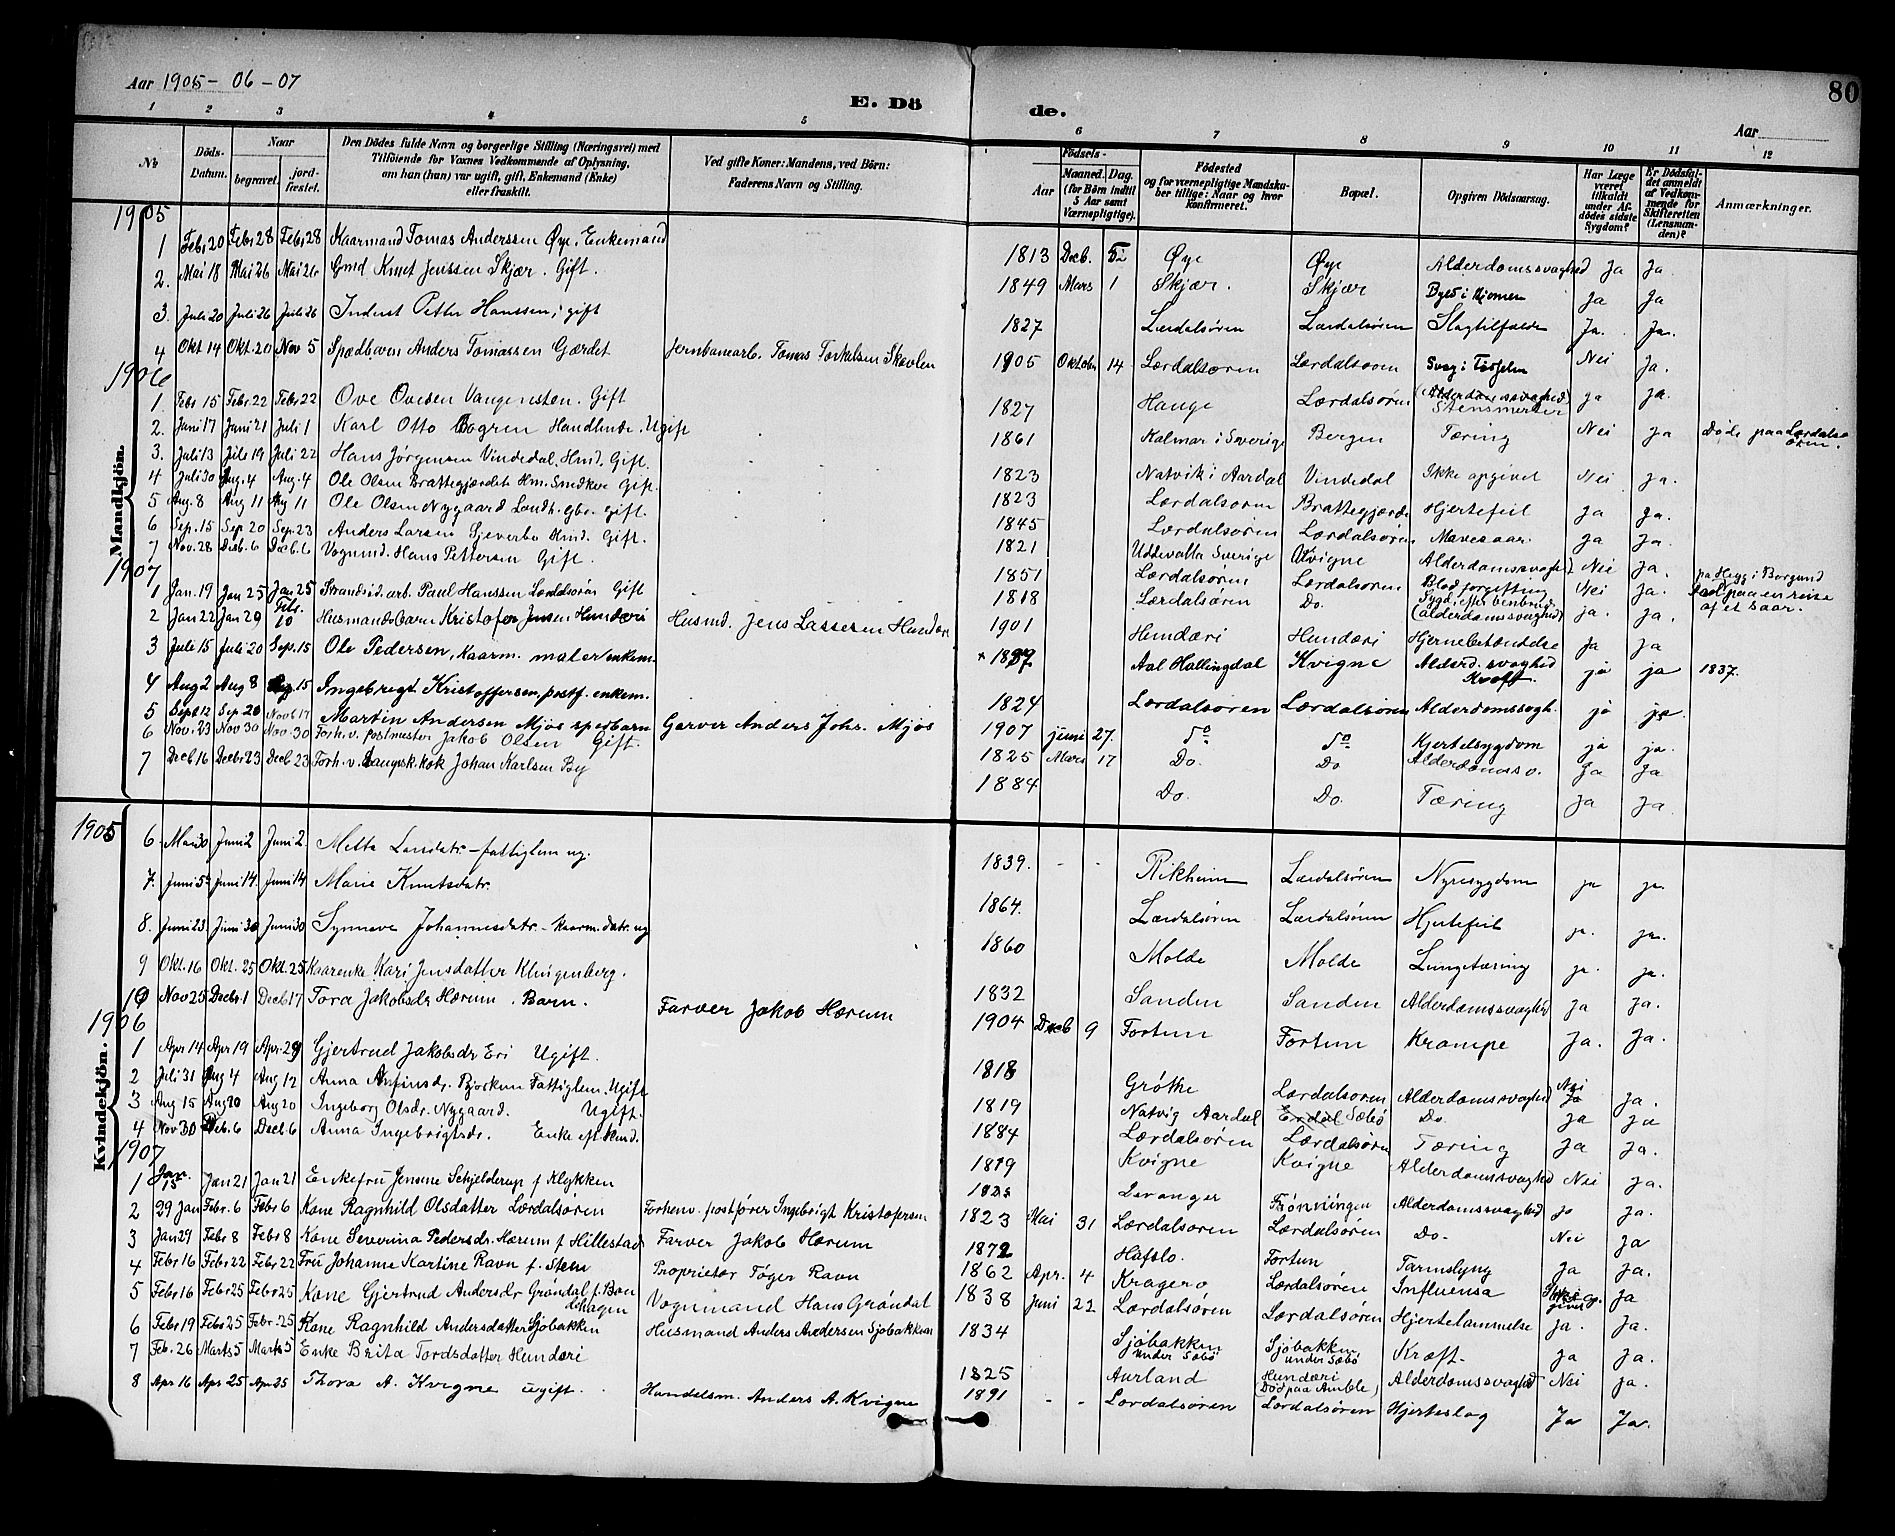 Aar 1905 - 06 - 07
E. Dö
de.
80
Aar
1 2 3 4 5 6 7 8 9 10 11 12
No
Döds-Datum.
Naar
begravet.
jord-fæstet.
Den Dödes fulde Navn og borgerlige Stilling (Næringsvei) med
Tilföiende for Voxnes Vedkommende af Oplysning,
om han (hun) var ugift, gift, Enkemand (Enke)
eller fraskilt.
Ved gifte Koner: Mandens, ved Börn:
Faderens Navn og Stilling.
Födsels-
Aar
Maaned. Dag.
(for Börn indtil
5 Aar samt
Værnepligtige).
Födested
og for værnepligtige Mandska-
ber tillige: Naar og hvor
konfirmeret.
Bopæl.
Opgiven Dödsaarsag.
Har Læge
været
tilkaldt
under Af-
dödes sidste
Sygdom?
Er Dödsfal-
det anmeldt
af Vedkom-
mende for
Skifteretten
(Lensman-
den)?
Anmærkninger.
Mandkjön.
1905
1 Febr 20 Febr 28 Febr 28 Kaarmand Tomas Anderssen Øye, Enkemand 1813 Decb. 5 Øye Øye Alderdomssvaghed Ja Ja.
2. Mai 18 Mai 26 Mai 26 Gmd Knut Jenssen Skjær. Gift. 1849 Mars 1 Skjær. Skjær Byld i Hjernen Ja Ja
3. Juli 20 Juli 26 Juli 26 Inderst Petter Hanssen, gift 1827 Lærdalsören Lærdalsören Slagtilfælde Ja. Ja.
4 Okt 14 Okt. 20 Nov 5 Spædbarn Anders Tomassen Gjærdet Jernbanearb. Tomas Torkelsen Skavlen 1905 Oktober 14 Lærdalsören Lærdalsören Svag i Födselen Nei Ja.
1906
1. Febr 15 Febr. 22 Febr 22 Ove Ovesen Vangensten. Gift 1827 Hauge Lærdalsören (Alderdomssvaghed) Stensmerter ja ja.
2. Juni 17 Juni 21 Juli 1 Karl Otto Bogren Handlende. Ugift 1861 Kalmar i Sverige Bergen Tæring Nei ja Döde paa Lærdalsören.
3. Juli 13 Juli 19 Juli 22 Hans Jörgensen Vindedal. Hmd. Gift. 1823 Natvik i Aardal Vindedal Ikke opgivet Nei ja.
4 Juli 30 Aug. 4 Aug. 4 Ole Olsen Brattegjærdet Hm. Smedkee Gift. 1823 Lærdalsören Brattegjærde Hjertefeil ja Ja.
5 Aug. 8 Aug 11 Aug 11 Ole Olsen Nygaard Landh. gbr. gift. 1845 Lærdalsören Lærdalsören Mavesaar. ja Ja.
6 Sep. 15 Sep 20 Sep. 23 Anders Larsen Gjeverbo Hmd. Gift. 1821 Uddevalla Sverige Kvigne Alderdomssvaghed Nei Ja.
7 Nov. 28 Decb. 6 Decb. 6 Vognmd. Hans Pettersen Gift. 1851 Lærdalsören Lærdalsören Blodforgiftning Nei Ja. paa Hegg i Borgund
1907
1 Jan. 19 Jan 25 Jan 25 Strandsid. arb. Paul Hanssen Lærdalsören Gift 1818 Lærdalsören Do. Sygd. efter benbrud (alderdomssvaghed) ja. Ja. paa en reise af et saar.
2 Jan 22 Jan 29 Febr. 10 Husmandsbarn Kristofer Jensen Hundæri Husmd. Jens Lassesen Hundæri 1901 Hundæri Hundæri Hjernebetændelse Ja Ja
3 Juli 15 Juli 20 Sep. 15 Ole Pedersen, kaarm. maler enkem. Aal Hallingdal Kvigne Alderd. svaghed Kræft. ja ja 1837.
4 Aug 2 Aug 8 Aug 15 Ingebregt Kristoffersen, postf. enkem. 1824 Lærdalsören Lærdalsören Alderdomssvagh. ja ja.
5 Sept 12 Sep. 20 Novb 17 Martin Andersen Mjøs spædbarn Garver Anders Johs. Mjøs 1907 juni 27. do do Kjertelsygdom ja ja.
6 Nov. 23 Nov 30 Nov. 30 Forh. v. postmester Jakob Olsen Gift. 1825 Mars 17 Do. Do Alderdomssv. Ja Ja
7 Decb 16 Decbr 23 Decb 23 Forh. v. kok Johan Karlsen By 1884 Do. Do. Tæring Ja Ja.
Kvindekjön.
1905
6. Mai 30 Juni 2 Juni 2. Metta Larsdatr. - fattiglem ug. 1839. - - Rikheim Lærdalsören Nyresygdom ja ja.
7. Juni 5 Juni 14. Juni 14 Marie Knutsdatr. 1864. Lærdalsören Lærdalsören Hjertefeil ja. ja.
8. Juni 23 Juni 30 Juni 30 Synneve Johannesdatr. - kaarm. datr. ug 1860 Molde Molde Lungetæring ja. ja.
9 Okt. 16 Okt. 25 Okt. 25 Kaarenke Kari Jensdatter Klingenberg. 1832 Sanden Sanden Alderdomssvaghed Ja Ja.
10 Nov 25 Decbr 1 Decb 17 Tora Jakobsdr Hærum. Barn. Farver Jakob Hærum 1904 Decb 9 Fortun Fortun Krampe Ja. Ja.
1906
1 Apr 14 Apr 19 Apr. 29 Gjertrud Jakobsdr Eri Ugift. 1818 Gröthe Lærdalsören Alderdomssvaghed Nei Ja.
2 Juli 31 Aug 4 Aug 12 Anna Anfinsdr. Bjorkum Fattiglem. Ugift 1819 Natvig Aardal Erdal Sæbö Do. Ja Ja
3 Aug 15 Aug 20 Aug 20 Ingeborg Olsdr. Nygaard. Ugift. 1884 Lærdalsören Lærdalsören Tæring Ja Ja.
4 Nov. 30 Decb. 6 Decb. 6 Anna Ingebrigtsdr. Enke eft. Husmd. 1819 Kvigne Kvigne Alderdomssvaghed Nei Ja.
1907
1 Jan. 15 Jan 21 Jan 21 Enkefru Jensine Schjelderup f. Klykken Leranger Frönningen Alderdomssvaghed Ja Ja.
2 29 Jan Febr. 6 Febr 6 Kone Ragnhild Olsdatter Lærdalsören Forhenv. postförer Ingebrigt Kristofersen 1823 Mai 31 Lærdalsören Lærdalsören Do. Nei Ja
3 Jan 29 Febr 8 Febr 8 Kone Severina Pedersdr. Hærum f Hillestad Farver Jakob Hærum 1872 Hafslo. Fortun Tarmslyng Ja Ja.
4 Febr 16 Febr 22 Febr 22 Fru Johanne Kartine Ravn f. Stem Proprietær Töger Ravn 1862 Apr. 4 Kragerø Lærdalsören Influensa Ikke opgivet Ja
5 Febr 16 Febr 25 Febr 25 Kone Gjertrud Andersdr Gröndal f. Bondehagen Vognmand Hans Gröndal 1838 Juni 22 Lærdalsören Lærdalsören Hjertelammelse Ja. Ja.
6 Febr 19 Febr 25 Febr. 25 Kone Ragnhild Andersdatter Sjöbakken Husmand Anders Andersen Sjöbakken 1834 Sjöbakken under Sæbö Sjöbakken under Sæbö Kræft. Ja Ja.
7 Feb. 26 Marts 5 Marts 5 Enke Brita Tordsdatter Hundæri 1825 Aurland Hundæri (Död paa Amble) Alderdomssvaghed Nei Ja.
8 Apr 16 Apr 25 Apr 25 Thora A. Kvigne ugift. Handelsm. Anders A. Kvigne 1891 - - Lærdalsören Lærdalsören Hjerteslag Ja Ja.